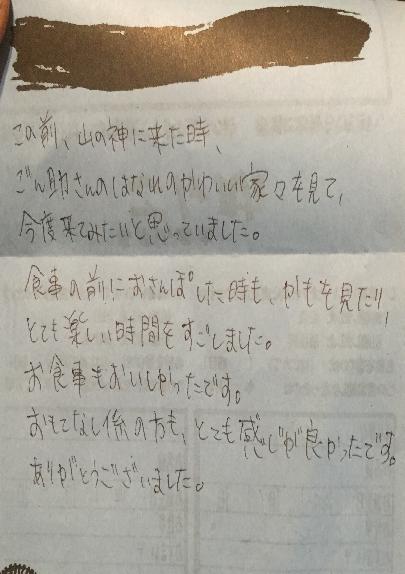 この前、山の神に来た時、
ごん助さんのはなれのかわいい家々を見て、
今度来てみたいと思っていました。
食事の前におさんぽした時も、かもを見たり、
とても楽しい時間をすごしました。
お食事もおいしかったです。
おもてなし係の方も、とても感じが良かったです。
ありがとうございました。